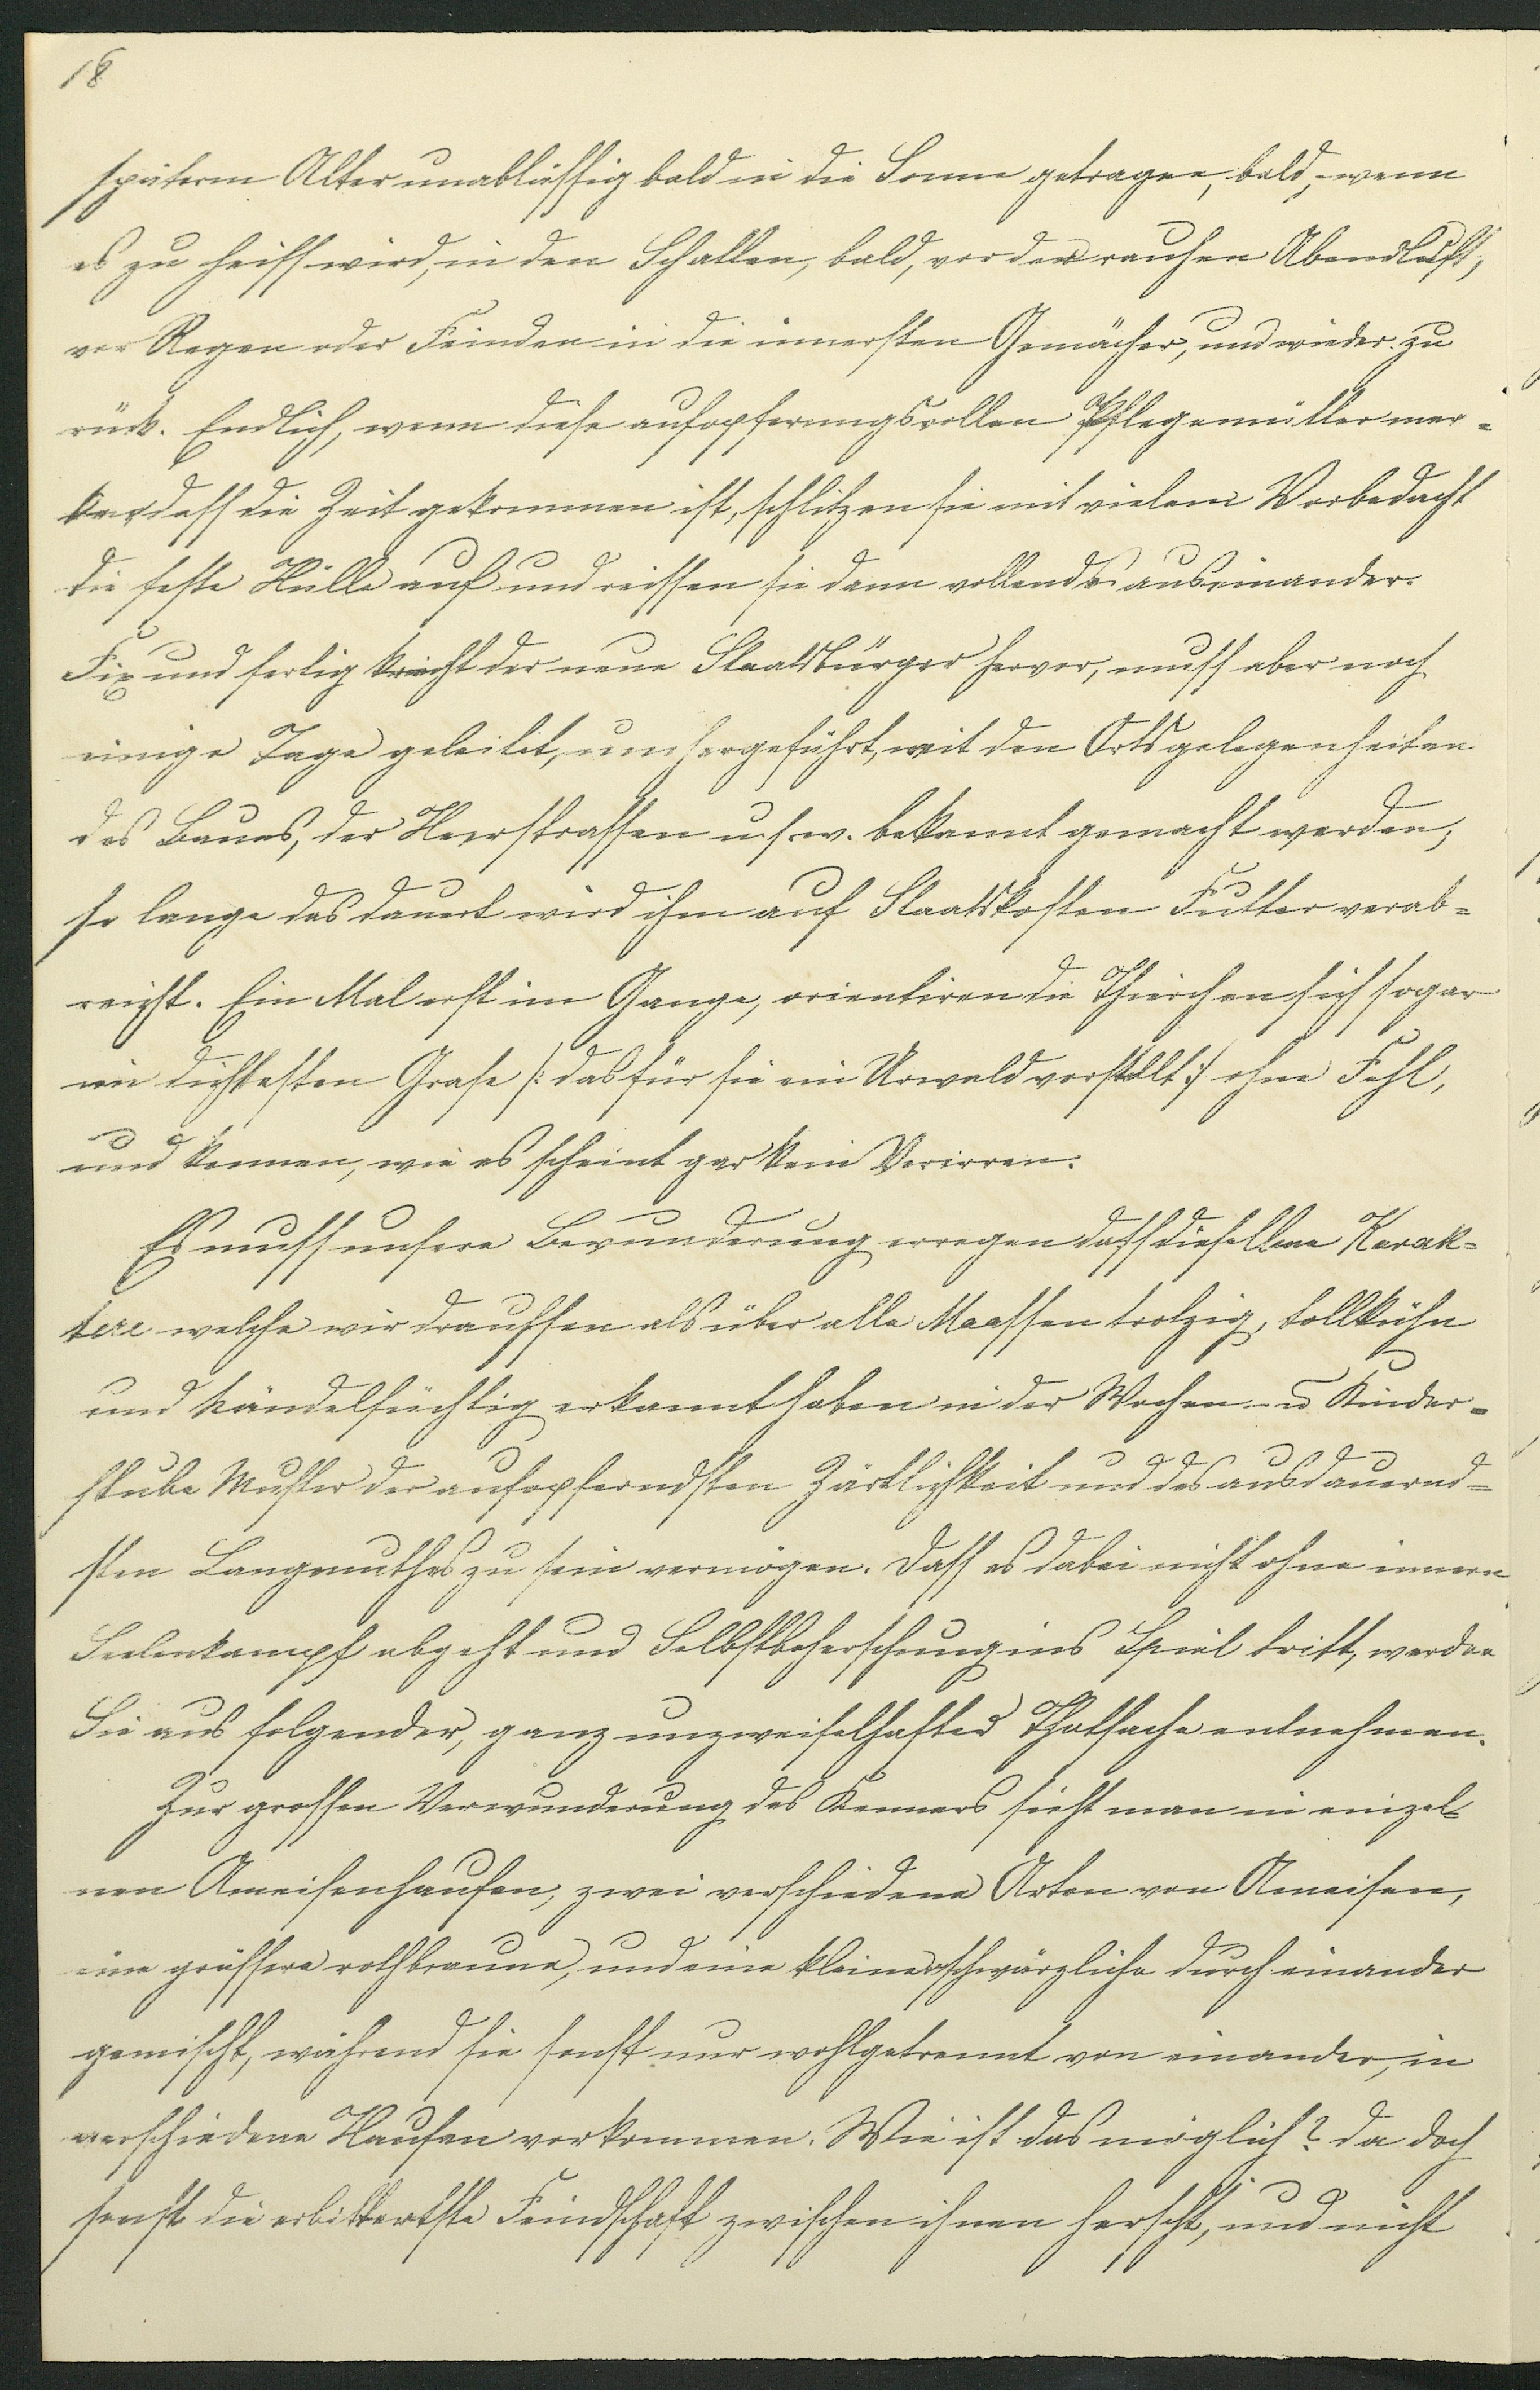 18
späterm Alter unabläßig bald in die Sonne getragen, bald, wenn
es zu heiß wird, in den Schatten, bald, vor der rauhen Abendluft,
vor Regen oder Feinden in die innersten Gemächer, und wieder zu
rück. Endlich, wenn diese aufopferungsvollen Pflegemütter mer-
ken daß die Zeit gekommen ist, schlitzen sie mit vielem Vorbedacht
die feste Hülle auf und reissen sie dann vollends auseinander.
Fix und fertig kriecht der neue Staatsbürger hervor, muß aber noch
einige Tage geleitet, umhergeführt, mit den Ortsgelegenheiten
des Baues, der Heerstraßen u.s.w. bekannt gemacht werden,
so lange das dauert wird ihm auf Staatskosten Futter verab-
reicht. Ein Mal erst im Gange, orientiren die Thierchen sich sogar
im dichtesten Grase /: das für sie ein Urwald vorstellt :/ ohne Fehl,
und kennen, wie es scheint gar kein Verirren.
Es muß unsere Bewunderung erregen daß dieselben Karak-
tere welche wir draußen als über alle Maaßen trotzig, tollkühn
und händelsüchtig erkannt haben in der Wochen- u Kinder-
stube Muster der aufopferndsten Zärtlichkeit und des ausdauernd-
sten Langmuthes zu sein vermögen. Daß es dabei nicht ohne innern
Seelenkampf abgeht und Selbstbeherschung ins Spiel tritt, werden
Sie aus folgender, ganz unzweifelhafter Thatsache entnehmen.
Zur großen Verwunderung des Kenners sieht man in einzel-
nen Ameisenhaufen, zwei verschiedene Arten von Ameisen,
eine größere rothbraune, und eine kleinere schwärzliche durch einander
gemischt, während sie sonst nur wohlgetrennt von einander, in
verschiedene Haufen vorkommen. Wie ist das möglich? da doch
sonst die erbittertste Feindschaft zwischen ihnen herscht, und nicht